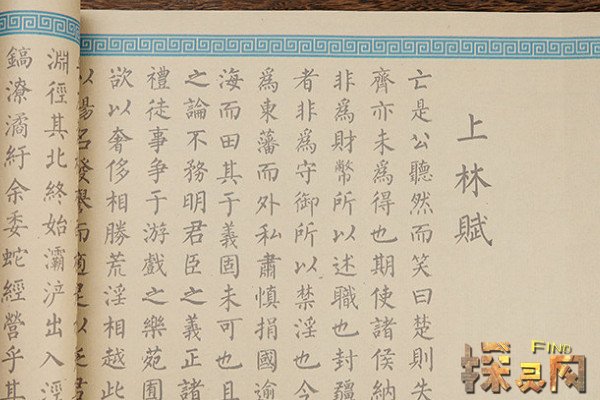 上林賦
亡是公聽然而笑曰楚則失
齊亦未爲得也期使諸侯納
非爲財幣所以述職也封疆
者非爲守御所以禁淫也今
爲東藩而外私肅慎捐國逾
海而田其于義固未可也且
之論不務明君臣之義正諸
禮徒事爭于游戲之樂苑囿
欲以奢侈相勝荒淫相越此
以揚名發譽而適足以
淵徑其北終始灞浐出入涇
鎬潦潏紆余委蛇經營乎其
FIND
探灵网